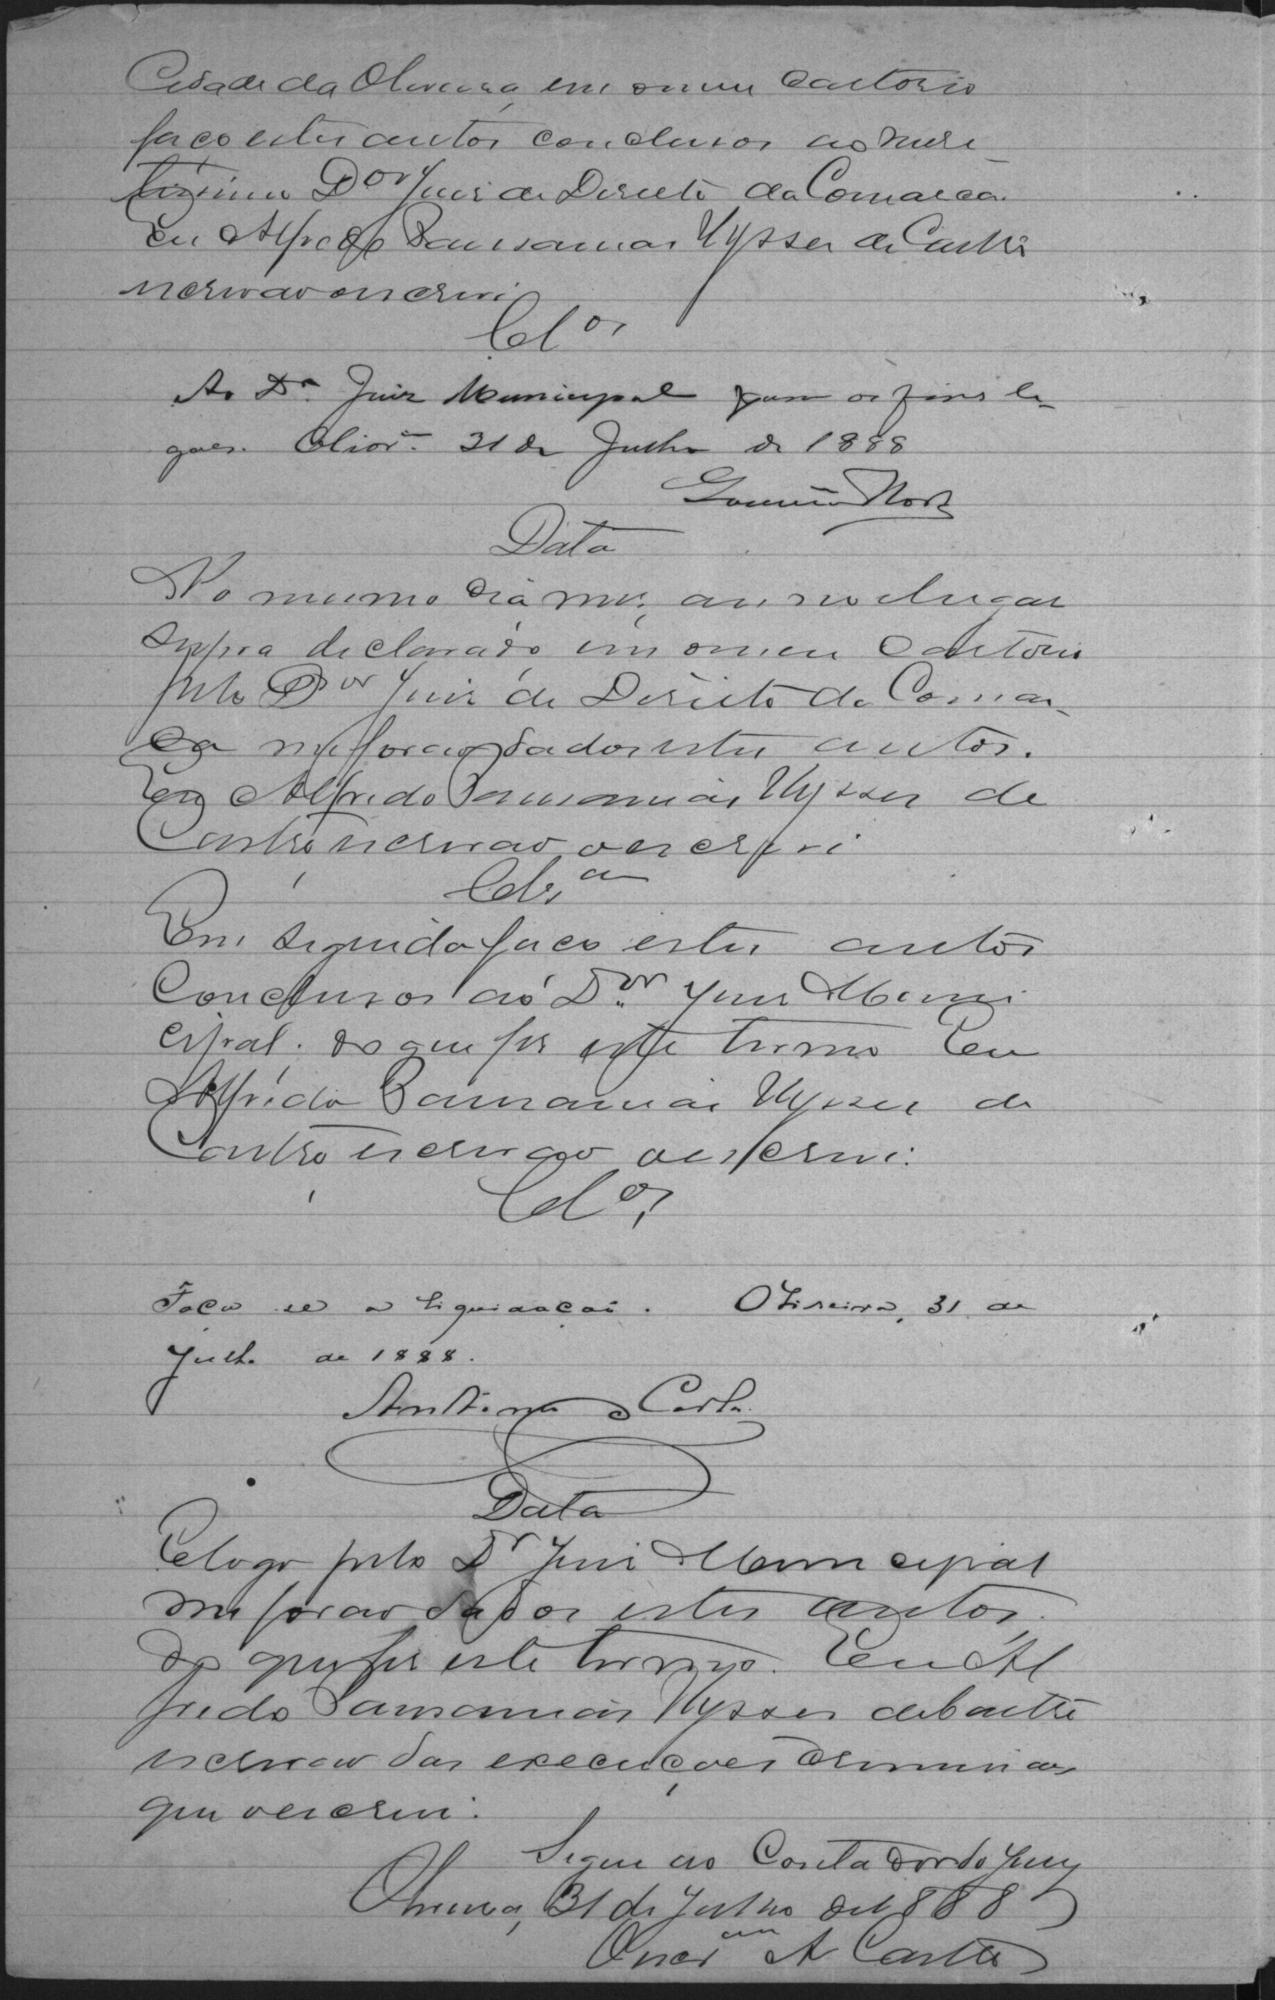 Cidade da Oliveira, em o meu Cartorio
faço estes autos conclusos ao Mere
tissimo Dor Juis de Direito da Comarca.
Eu Alfredo Pausanias Ulysses de Castro
escrivão o escrevi
Clos
Ao Dr. Juiz Municipal para os fins le-
gaes. Olivra 31 de Julho de 1888
Data
No mesmo dia mes, anno e lugar
supra declarado, em o meu Cartorio
pelo Dor Juis de Direito da Comar-
ca me forão dados estes autos.
Eu Alfredo Pausanias Ulysses de
Castro escrivão o escrevi
Clsam
Em seguida faço estes autos
Conclusos ao Dor Juis Muni
cipal. do que fis este termo Eu
Alfredo Pausanias Ulysses de
Castro escrivão o escrevi.
Clos
Faça se a liquidação. Oliveira, 31 de
Julho de 1888.
Data
E logo pelo Dr Juis Municipal
me forão dados estes autos.
do que fis este termo. Eu Al
fredo Pausanias Ulysses de Castro
escrivão das execuções Criminaes
que o escrevi.
Segue ao Contador do Juiz
Oliveira, 31 de Julho de 1888
Oescram A Castro